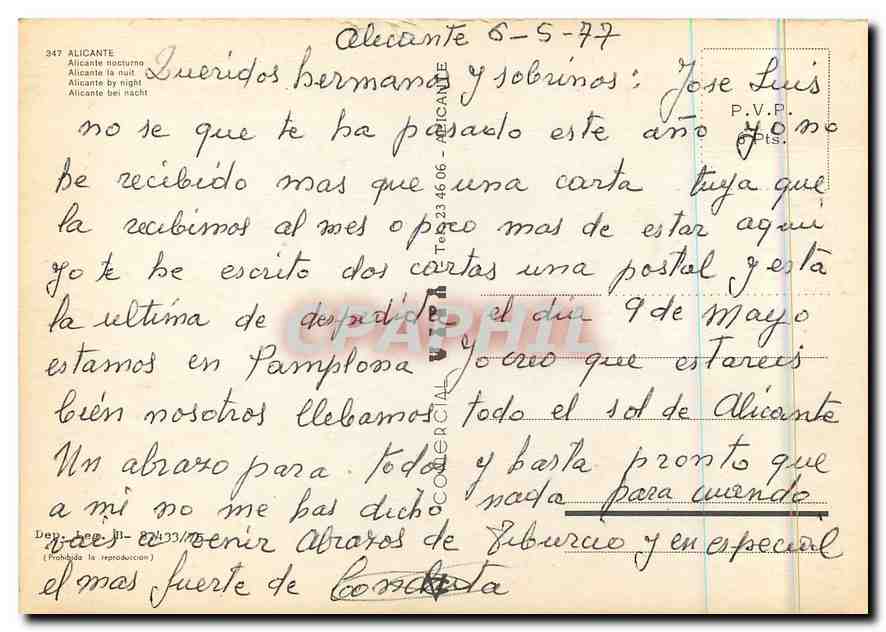 347 ALICANTE
Alicante nocturno
Alicante la nuit
Alicante by night
Alicante bei nacht
P.V.P.
6 Pts.
COMERCIAL VIPA Tel. 23 46 06 - ALICANTE
Alicante 6-5-77
Queridos hermanos y sobrinos: Jose Luis
no se que te ha pasado este año yo no
he recibido mas que una carta tuya que
la recibimos al mes o poco mas de estar aqui
Yo te he escrito dos cartas una postal y esta
la ultima de despedida el dia 9 de Mayo
estamos en Pamplona Yo creo que estareis
bien nosotros llebamos todo el sol de Alicante
Un abrazo para todos y hasta pronto que
a mi no me has dicho nada para cuando
vais a venir Abrazos de Tiburcio y en especial
el mas fuerte de Conchita
Dep. Leg. B-
(Prohibida la reproducción)
CPAPHIL